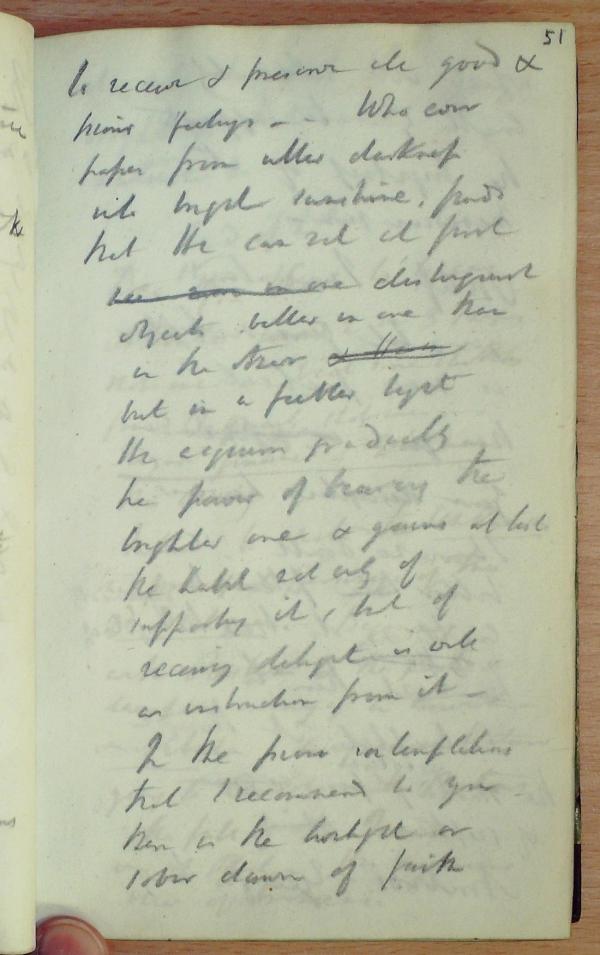 51
to receive & preserve the good &
pious feelings - - Who ever
passes from utter darkness
into bright sunshine, finds
that He can not at first
distinguish
objects better in one than
in the other
but in a feebler light
He acquires gradually
the power of bearing the
brighter one & gains at last
the habit not only of
supporting it, but of
receiving delight as well
as instruction from it -
In the pious contemplations
that I recommend to you
there is the twilight or
sober dawn of faith